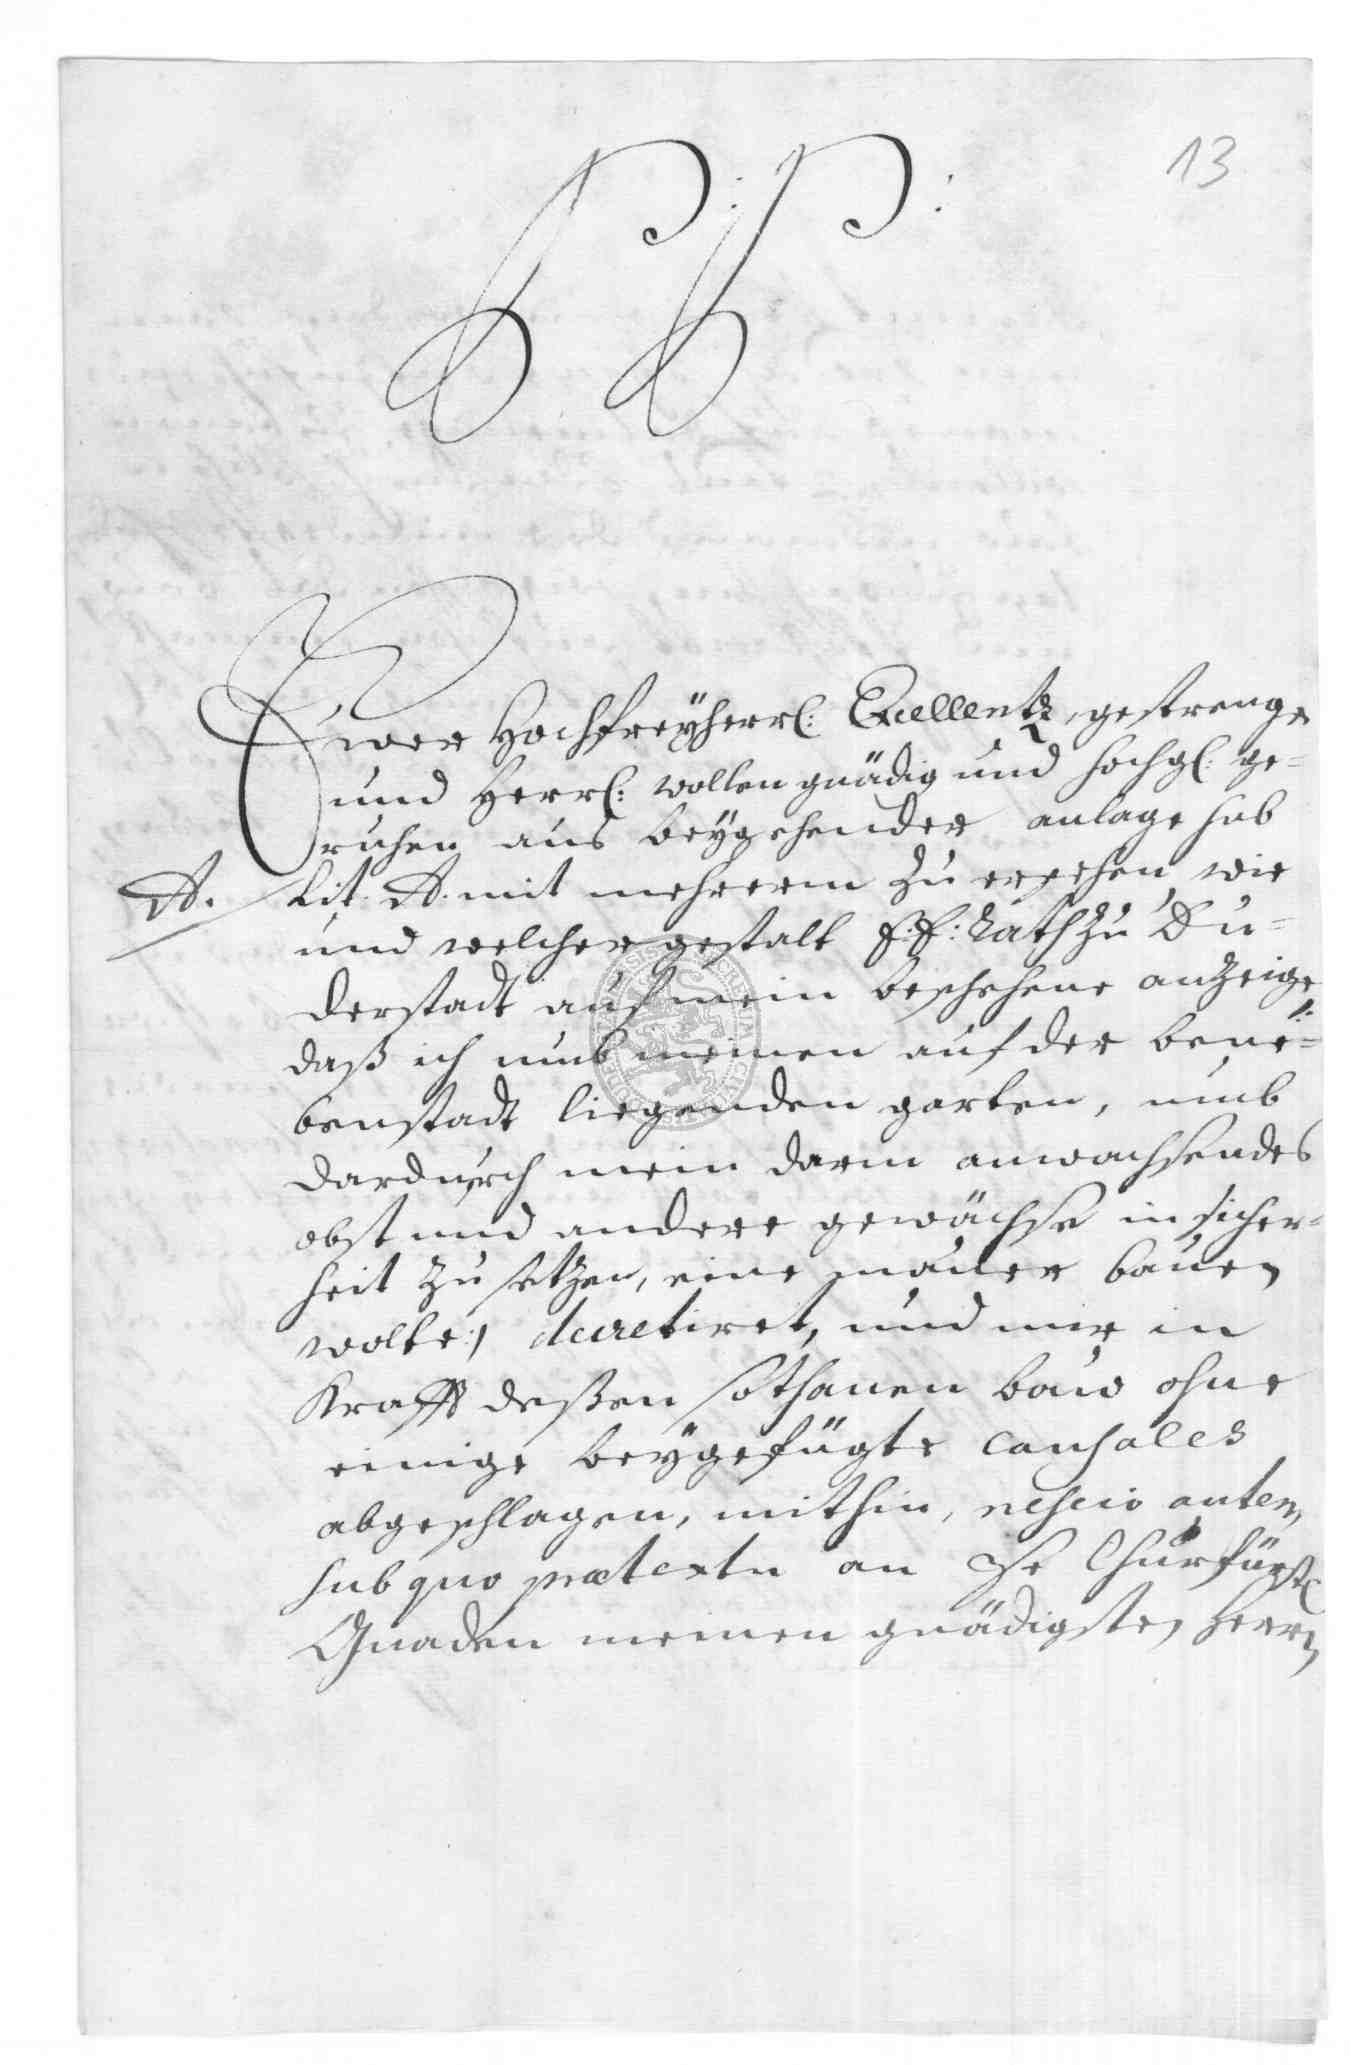 13
P: P:
Ewer Hochfreyherrl: Excellentz, gestrenge
und Herrl: wollen gnädig und hochgl: ge=
ruhen aus beygehender anlage sub
A. Lit: A. mit mehrerm zu ersehen wie
und welchergestalt E: E: Rath zu Du=
derstadt auf mein beschehene anzeige
daß ich umb meinen auf der bene=
benstadt liegenden garten, umb
dardurch mein darin anwachsendes
obst und andere gewächse in sicher=
heit zu setzen, eine mauer bauen
wolte:/ decretiret, und mir in
Krafft deßen sothanen bauw ohne
einige beygefügte causales
abgeschlagen, mithin, nescio autem
sub quo praetextu an Ihr Churfürstl
Gnaden meinen gnädigsten Herrn